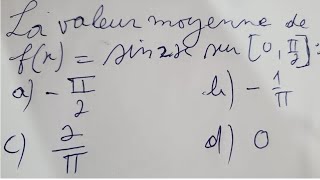 La valeur moyenne de
f(x) = sin2x sur [0, π/2] :
a) - π/2 b) - 1/π
c) 2/π d) 0